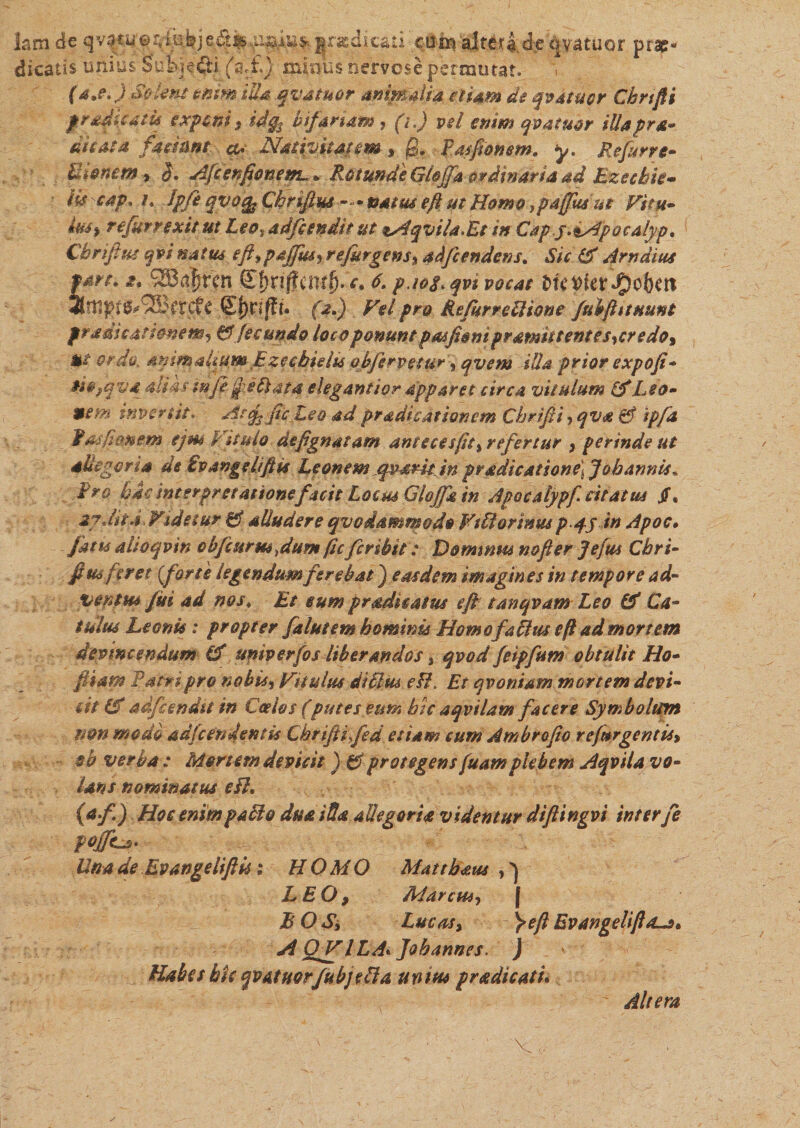 lam de qvatuor subjectis unius prædicati cum altera de qvatuor præ-
dicatis unius Subjecti (a.f.) minus nervose permutat.
(a.e.) Solent enim illa qvatuor animalia etiam de qvatuor Christi
prædicatis exponi, idq; bifariam, (1.) vel enim qvatuor illa præ-
dicata faciunt α. Nativitatem, β. Passionem. γ. Resurre-
ctionem, δ. Ascensionem. Rotunde Glossa ordinaria ad Ezechie-
lis cap. 1. Ipse qvoq; Christus -- natus est ut Homo, passus ut Vitu-
lus, resurrexit ut Leo, adscendit ut Aqvila. Et in Cap 5. Apocalyp.
Christus qvi natus est, passus, resurgens, adscendens. Sic & Arndius
part. 2. Wahren Christenth. c. 6. p. 108. qvi vocat die vier Hohen
Ampts-Wercke Christi. (2.) Vel pro Resurrectione substituunt
prædicationem, & secundo loco ponunt passioni præmittentes, credo,
ut ordo animalium Ezechielis observetur, qvem illa prior exposi-
tio, qvæ aliàs in se spectata elegantior apparet circa vitulum & Leo-
nem invertit. Atq; sic Leo ad prædicationem Christi, qvæ & ipsa
Passionem ejus Vitulo designatam antecessit, refertur, perinde ut
allegoria de Evangelistis Leonem qværit in prædicatione Johannis.
Pro hac interpretatione facit Locus Glossæ in Apocalyps. citatus §.
27. lit. i. Videtur & alludere qvodammodo Victorinus p. 45 in Apoc.
satis alioqvin obscurus, dum sic scribit: Dominus noster Jesus Chri-
stus feret (forte legendum ferebat) easdem imagines in tempore ad-
ventus sui ad nos. Et eum prædicatus est tanqvam Leo & Ca-
tulus Leonis: propter salutem hominis Homo factus est ad mortem
devincendum & universos liberandos, qvod seipsum obtulit Ho-
stiam Patri pro nobis, Vitulus dictus est. Et qvoniam mortem devi-
cit & adscendit in Cœlos (putes eum hic aqvilam facere Symbolum
non modò adscendentis Christi, sed etiam cum Ambrosio resurgentis,
ob verba: Mortem devicit) & protegens suam plebem Aqvila vo-
lans nominatus est.
(a.f.) Hoc enim pacto duæ illæ allegoriæ videntur distingvi inter se
posse.
Una de Evangelistis: HOMO Matthæus, }
LEO, Marcus, |
BOS, Lucas, } est Evangelista.
AQVILA, Johannes. )
Habes hîc qvatuor subjecta unius prædicati.
Altera